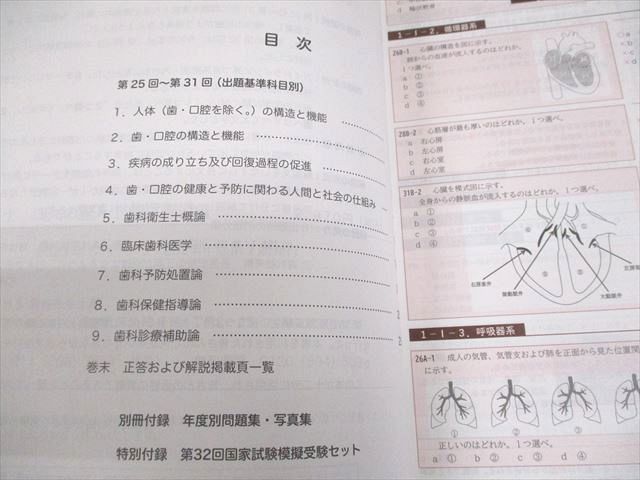 目 次
第25回～第31回（出題基準科目別）
1．人体（歯・口腔を除く。）の構造と機能
2．歯・口腔の構造と機能
3．疾病の成り立ち及び回復過程の促進
4．歯・口腔の健康と予防に関わる人間と社会の仕組み
5．歯科衛生士概論
6．臨床歯科医学
7．歯科予防処置論
8．歯科保健指導論
9．歯科診療補助論
巻末 正答および解説掲載頁一覧
別冊付録 年度別問題集・写真集
特別付録 第32回国家試験模擬受験セット
1－1－2．循環器系
26B-1 心臓の構造を図に示す。
肺からの血液が流入するのはどれか。
1つ選べ。
a ①
b ②
c ③
d ④
28B-2 心筋層が最も厚いのはどれか。1つ選べ。
a 右心房
b 左心房
c 右心室
d 左心室
31B-2 心臓を模式図に示す。
全身からの静脈血が流入するのはどれか。1つ選べ。
a ①
b ②
c ③
d ④
右房室弁
肺動脈弁
大動脈弁
1－1－3．呼吸器系
26A-1 成人の気管、気管支および肺を正面から見た位置関
に示す。
① ② ③
正しいのはどれか。1つ選べ。
a ① b ② c ③ d ④